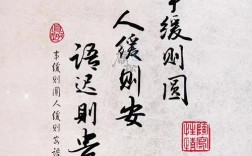 事缓则圆
人缓则安
语迟则贵
事缓则圆人缓则安语